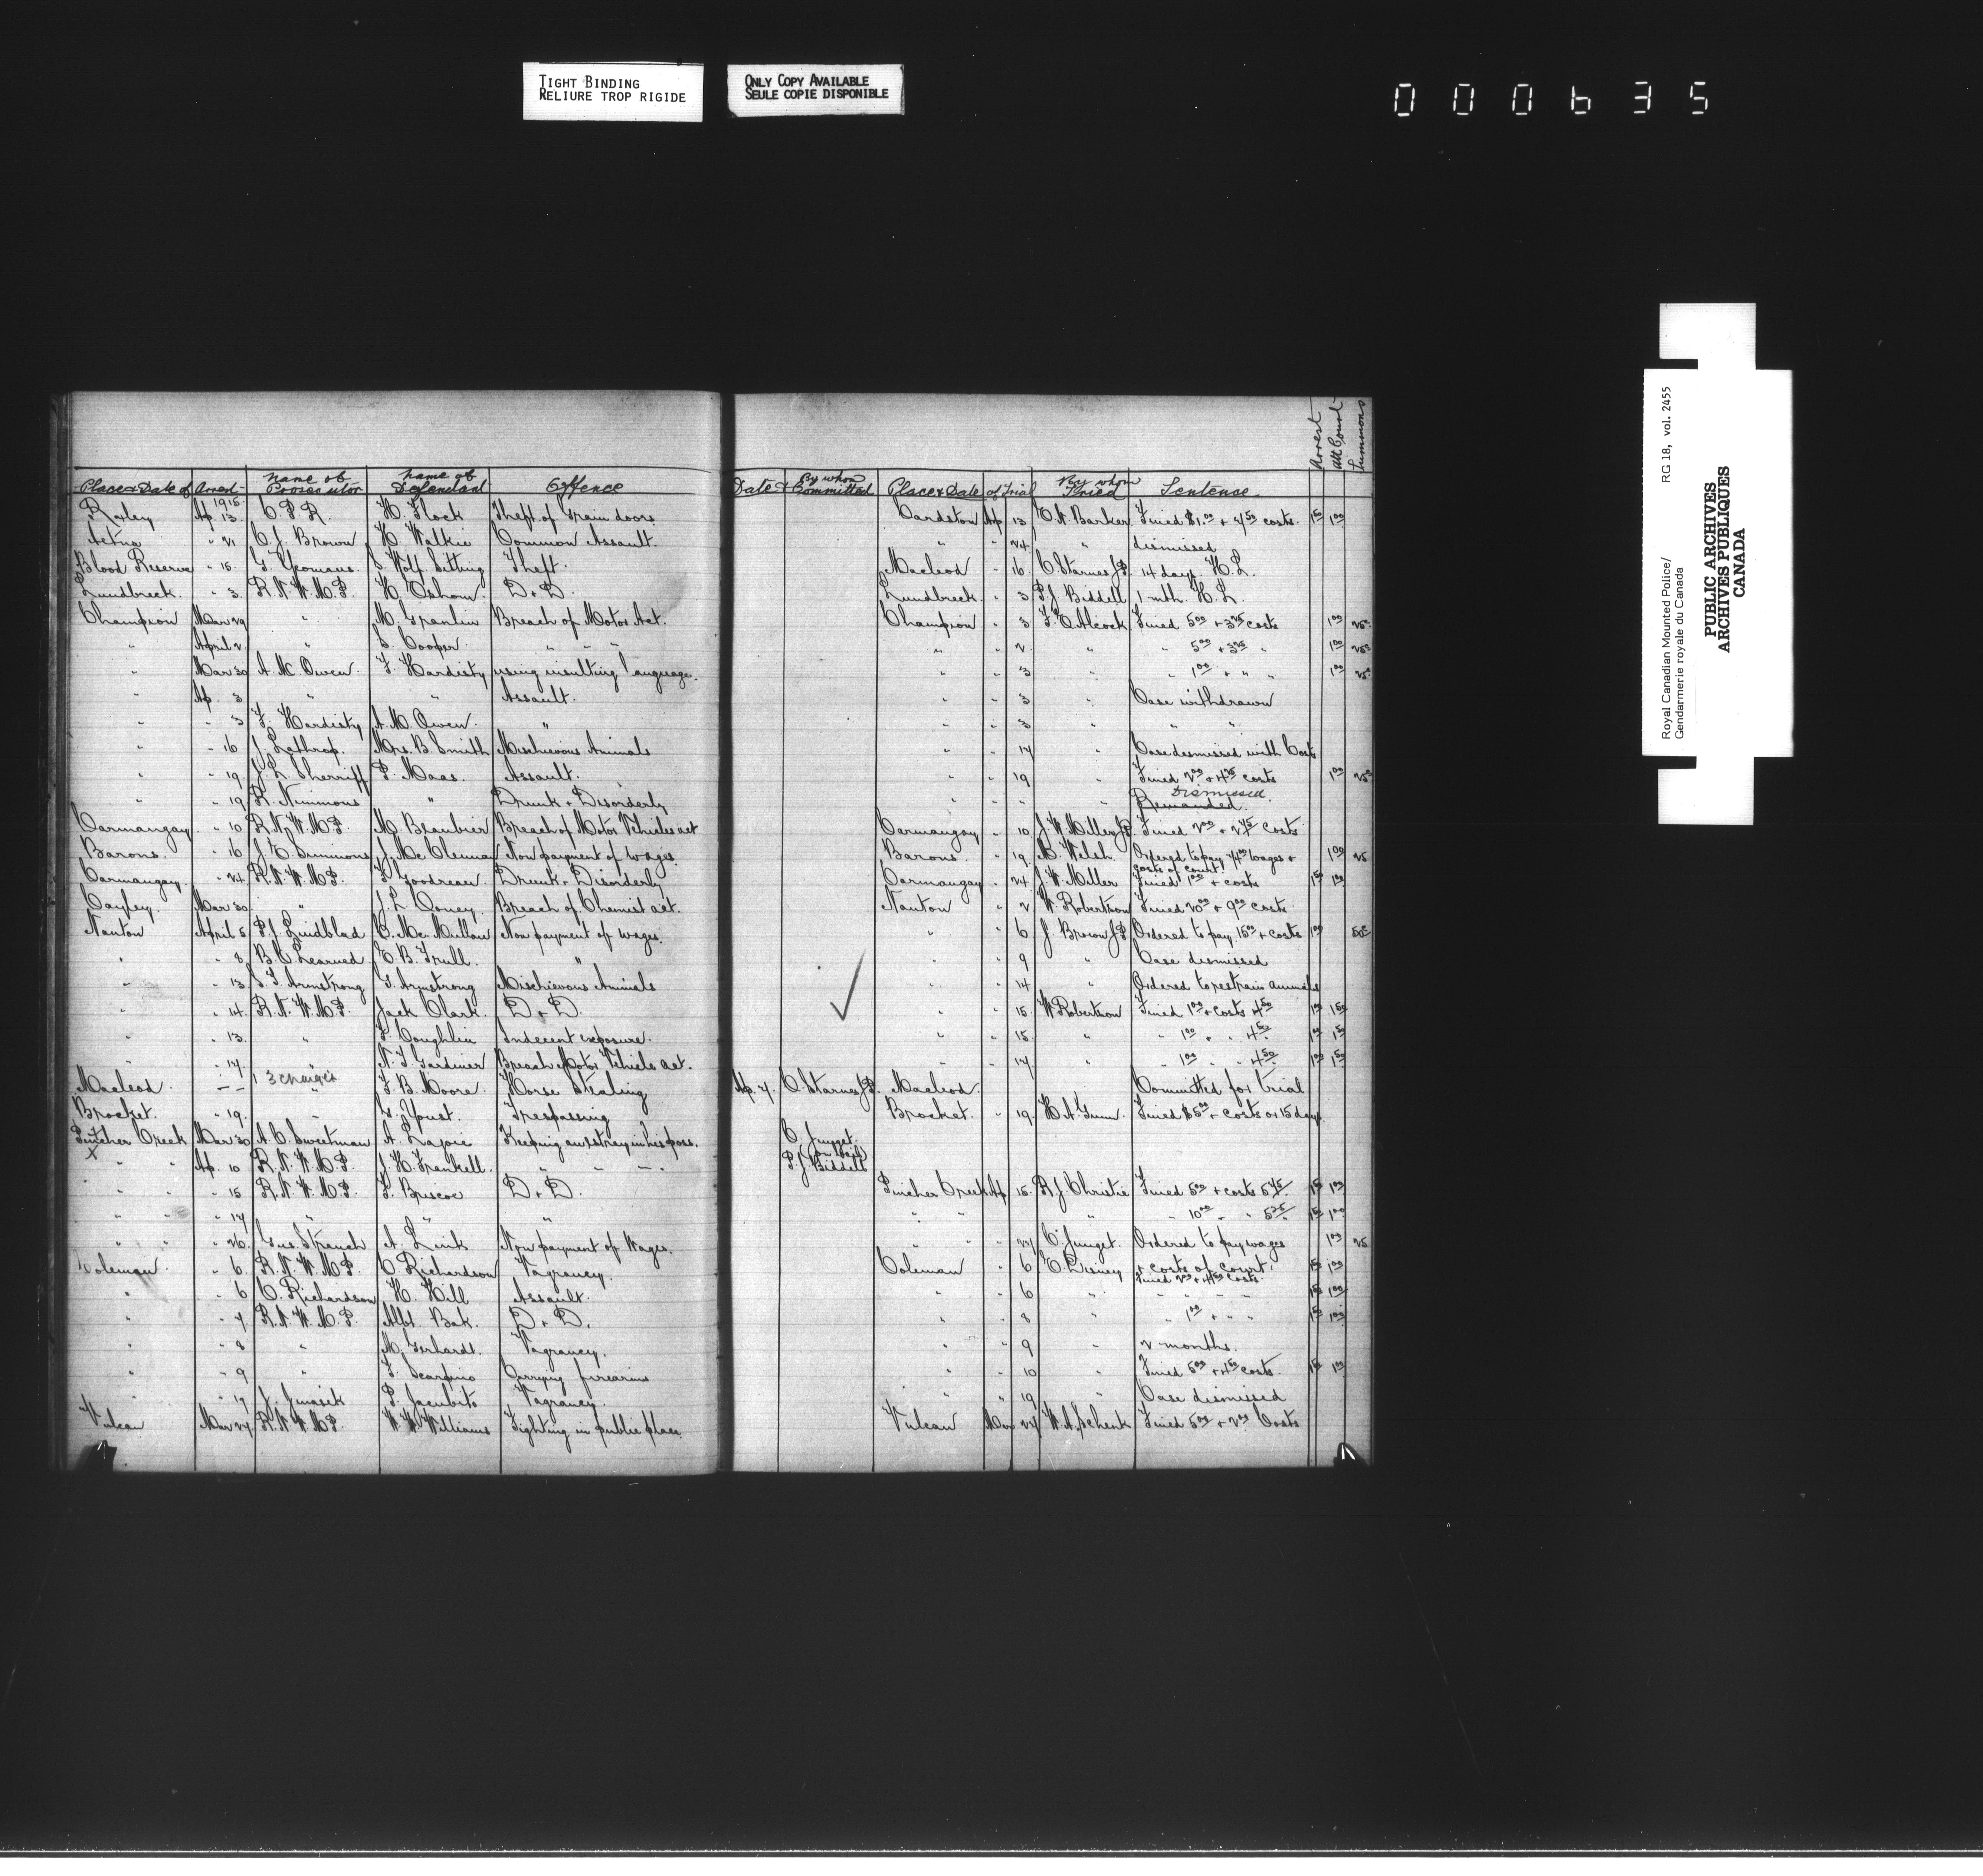 TIGHT BINDING
RELIURE TROP RIGIDE
ONLY COPY AVAILABLE
SEULE COPIE DISPONIBLE
000635
Royal Canadian Mounted Police/ RG 18, vol. 2455
Gendarmerie royale du Canada
PUBLIC ARCHIVES
ARCHIVES PUBLIQUES
CANADA
Arrest Att Court Summons
Place & Date of Arrest Name of Prosecutor Name of Defendant Offence Date & By whom Committed Place & Date of Trial By whom Tried Sentence
1915
Raley Ap. 13 C.P.R. H. Flock Theft of Grain doors Cardston Ap 13 E.N. Barker Fined $1.00 + 4.50 costs 1.50 1.00
Aetna " 21 C.J. Brown H. Walkie Common Assault. " " 24 " dismissed
Blood Reserve " 15 G. Yeomans S. Wolf Sitting Theft. Macleod " 16 C. Starnes J.P. 14 days H.L.
Lundbreck " 3 R.N.W.M.P. H. Osborn D + D. Lundbreck " 3 P.J. Biddell 1 mth. H.L.
Champion Mar 29 " M. Granlin Breach of Motor Act. Champion " 3 F. Alcock Fined 5.00 + 3.25 costs 1.00 25c
" April 2 " S. Cooper " " " " " 2 " " 5.00 + 3.25 " 1.00 25c
" Mar 30 A. M. Owen F. Hardisty using insulting language. " " 3 " " 1.00 + " " 1.00 25c
" Ap. 3 " " Assault. " " 3 " Case withdrawn
" " 3 F. Hardisty A. M. Owen. " " " 3 " " "
" " 16 J. Lathrop. Mrs. B. Smith Mischievous Animals " " 17 " Case dismissed with Costs
" " 19 J. L. Sherriff P. Maas. Assault. " " 19 " Fined 2.00 + 4.75 costs 1.00 25c
Dismissed.
" " 19 R. Nimmons " Drunk + Disorderly " " " " Remanded.
Carmangay " 10 R.N.W.M.P. M. Beaubier Breach of Motor Vehicles act Carmangay " 10 J.W. Miller J.P. Fined 2.00 + 2.75 costs
Barons. " 16 J.E. Simmons J. McClennan Non payment of wages. Barons. " 19 M. Welsh Ordered to pay wages + 1.00 25
costs of court.
Carmangay " 24 R.N.W.M.P. F. Goodreau. Drunk + Disorderly Carmangay " 24 J.W. Miller Fined 1.00 + costs 1.50 1.00
Cayley. Mar 30 " J. L. Comey. Breach of Chemist act. Nanton " 2 W. Robertson Fined 20.00 + 9.00 costs
Nanton April 5 P.J. Lindblad C. McMillan Non payment of wages. " " 6 J. Brown J.P. Ordered to pay 15.00 + costs 1.00 50c
" " 8 B.C. Learned E.B. Trull. " " " 9 " Case dismissed
" " 13 S.T. Armstrong G. Armstrong Mischievous Animals " " 14 " Ordered to restrain animals
" " 14 R.N.W.M.P. Jack Clark. D + D. " " 15 W. Robertson Fined 1.00 + costs 4.50 1.00 1.50
" " 13 " L. Coughlin Indecent exposure. " " 15 " " 1.00 " " 4.50 1.00 1.50
" " 17 " N.T. Gardiner Breach Motor Vehicle act. " " 17 " " 1.00 " " 4.50 1.00 1.50
3 charges
Macleod. — — " F.B. Moore. Horse Stealing Ap. 7. C. Starnes J.P. Macleod. Committed for trial
Brocket. " 19 " G. Youst. Trespassing Brocket. " 19 H.A. Gunn. Fined $5.00 + costs or 15 days
Pincher Creek Mar 30 A.C. Sweetman A. Lajoie Keeping an estray in his poss. C. Junget.
(on bail)
x " " Ap. 10 R.N.W.M.P. J.H. Frankell. " " " P.J. Biddell
" " " 15 R.N.W.M.P. F. Briscoe D + D. Pincher Creek Ap 15 R.J. Christie Fined 5.00 + costs 5.75 1.50 1.00
" " " 17 " " " " " " " 10.00 " " 5.25 1.50 1.00
" " " 26 Gus. French A. Link Non payment of Wages. " " " 27 C. Junget. Ordered to pay wages 1.00 25
+ costs of court.
Coleman " 6 R.N.W.M.P. C. Richardson Vagrancy. Coleman " 6 E. Disney Fined 2.00 + 4.50 costs. 1.50 1.00
" " 6 C. Richardson H. Hill Assault. " " 6 " " " " " 1.50 1.00
" " 7 R.N.W.M.P. Albt. Bak. D + D. " " 8 " " 1.00 + " " 1.50 1.00
" " 8 " M. Gerhardt. Vagrancy. " " 9 " 2 months.
" " 9 " F. Scarpino Carrying firearms " " 10 " Fined 5.00 + 4.50 costs. 1.50 1.00
" " 17 J. Jurasek P. Jacubito Vagrancy. " " 19 " Case dismissed
Vulcan Mar 27 R.N.W.M.P. W.W. Williams Fighting in public place. Vulcan Mar 27 W.A. Schenk Fined 5.00 + 2.00 Costs